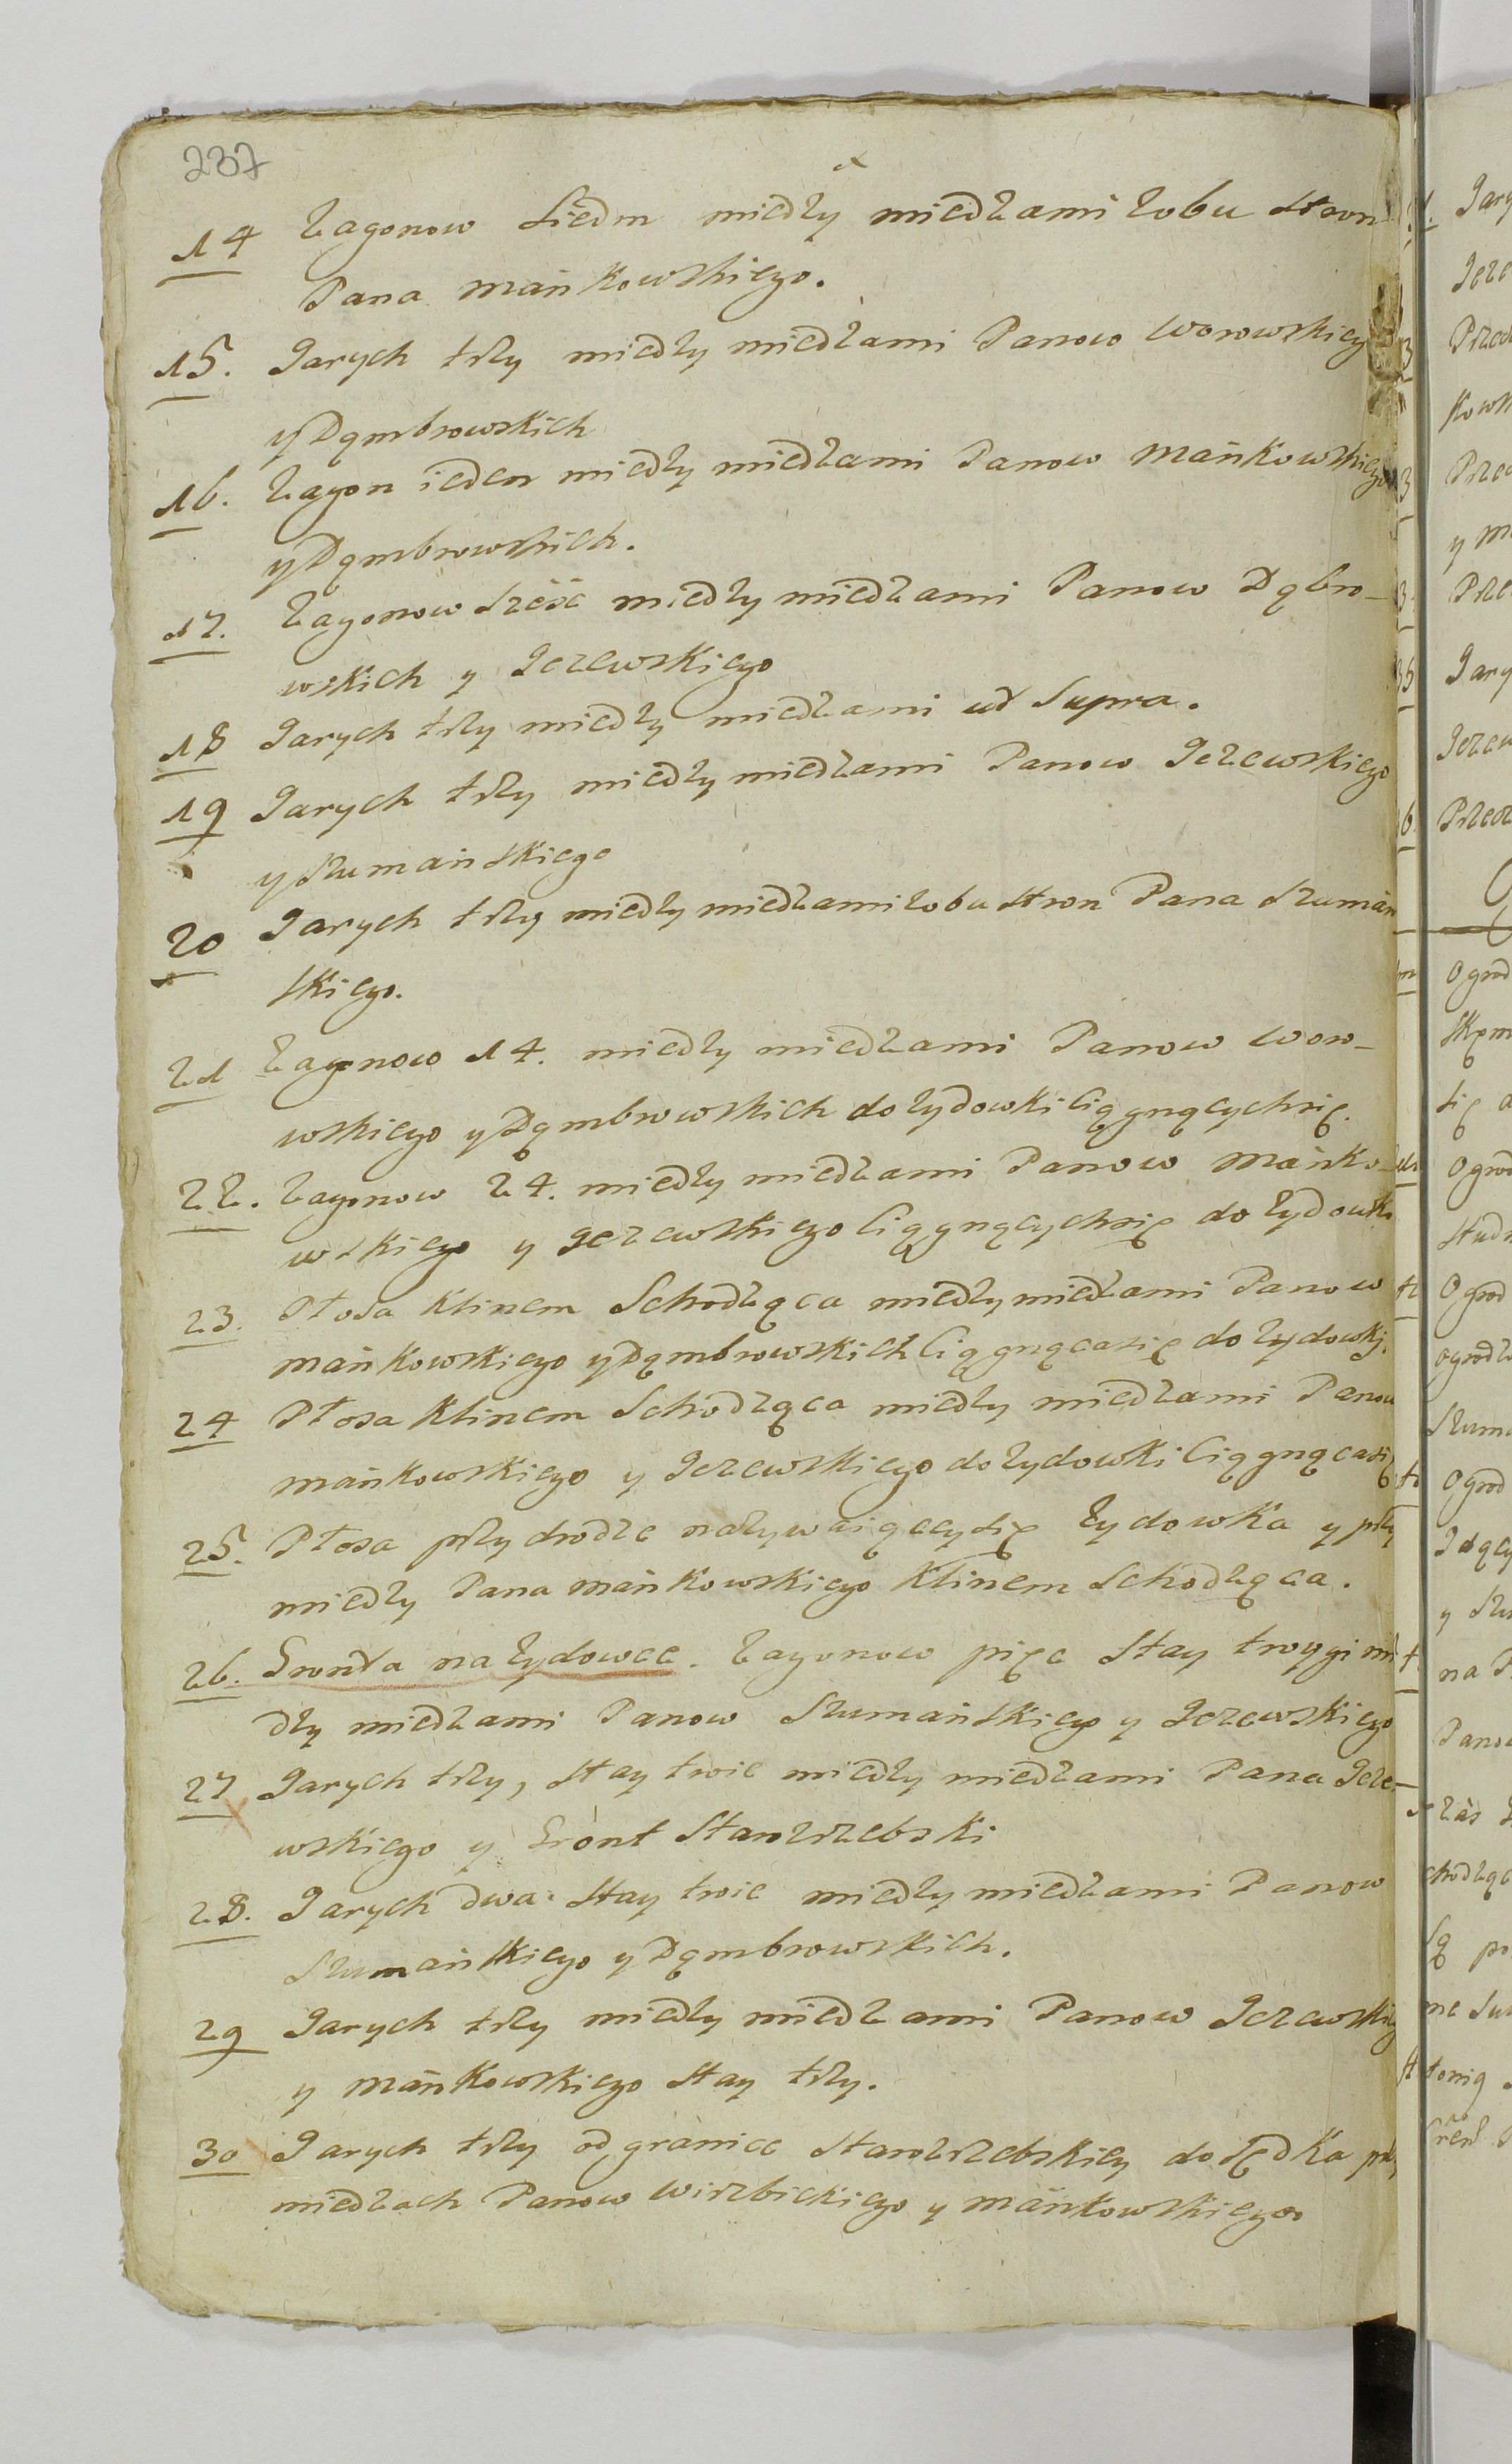 237
14 Zagonow Siedm miedzy miedzami z obu stron
Pana Mańkowskiego.
15. Jarych trzy miedzy miedzami Panow Worowskiey
y Dąmbrowskich
16. Zagon ieden miedzy miedzami Panow Mańkowskiego
y Dąmbrowskich.
17. Zagonow sześć miedzy miedzami Panow Dąbro-
wskich y Jezewskiego
18 Jarych trzy miedzy miedzami ut Supra.
19 Jarych trzy miedzy miedzami Panow Jezewskiego
y Szumańskiego
20 Jarych trzy miedzy miedzami z obu stron Pana Szumań
skiego.
21 Zagonow 14. miedzy miedzami Panow Woro-
wskiego y Dąmbrowskich do zydowki Ciągnących się.
22. Zagonow 24. miedzy miedzami Panow Mańko-
wskiego y Jezewskiego Ciągnących się do zydowki
23. Płosa Klinem Schodząca miedzy miedzami Panow
Mańkowskiego y Dąmbrowskich Ciągnąca się do zydowki.
24 Płosa Klinem Schodząca miedzy miedzami Panow
Mańkowskiego y Jezewskiego do zydowki Ciągnąca się
25. Płosa przy drodze nazywaiącey się zydowka y przy
miedzy Pana Mańkowskiego Klinem Schodząca.
26. Gronta na zydowce. Zagonow pięc Stay troygi mi
dzy miedzami Panow Szumańskiego y Jezewskiego
27 Jarych trzy, Stay troie miedzy miedzami Pana Jeze-
wskiego y Gront Starozrzebski
28. Jarych dwa. Stay troie miedzy miedzami Panow
Szumańskiego y Dąmbrowskich.
29 Jarych trzy miedzy miedzami Panow Jezewskieg
y Mańkowskiego Stay trzy.
30 Jarych trzy od granice Starozrzebskiey do Łędka przy
miedzach Panow Wirzbickiego y Mańkowskiego